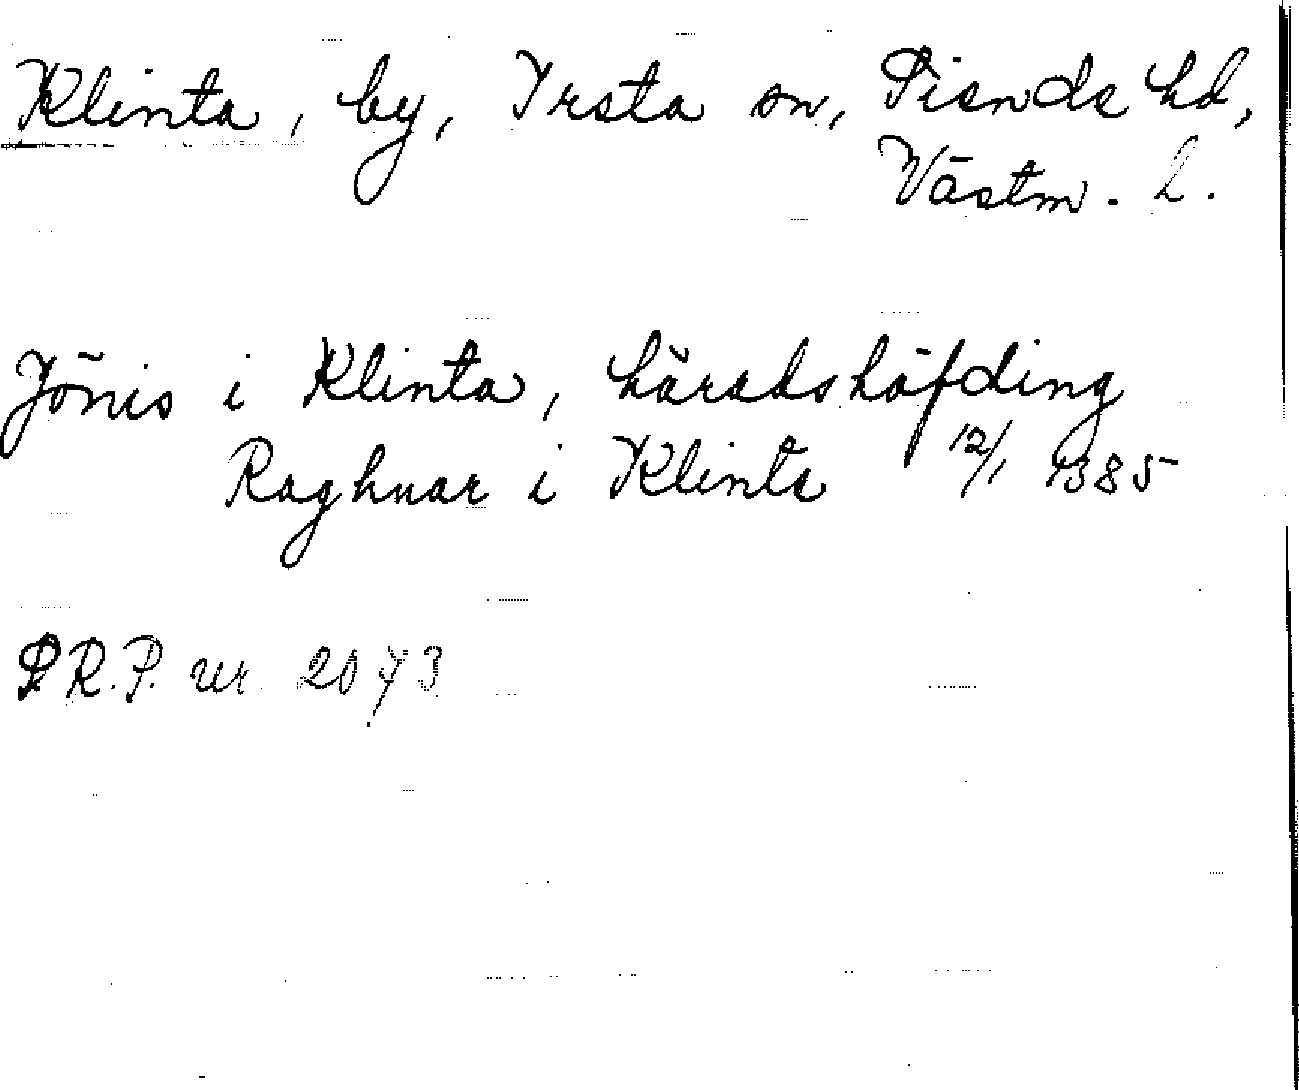 Klinta, by, Irsta sn, Siende hd,
Västm. L.
Jönis i Klinta, häradshöfding
Raghnar i Klinta 12/1 1385
R.P. nr 2073